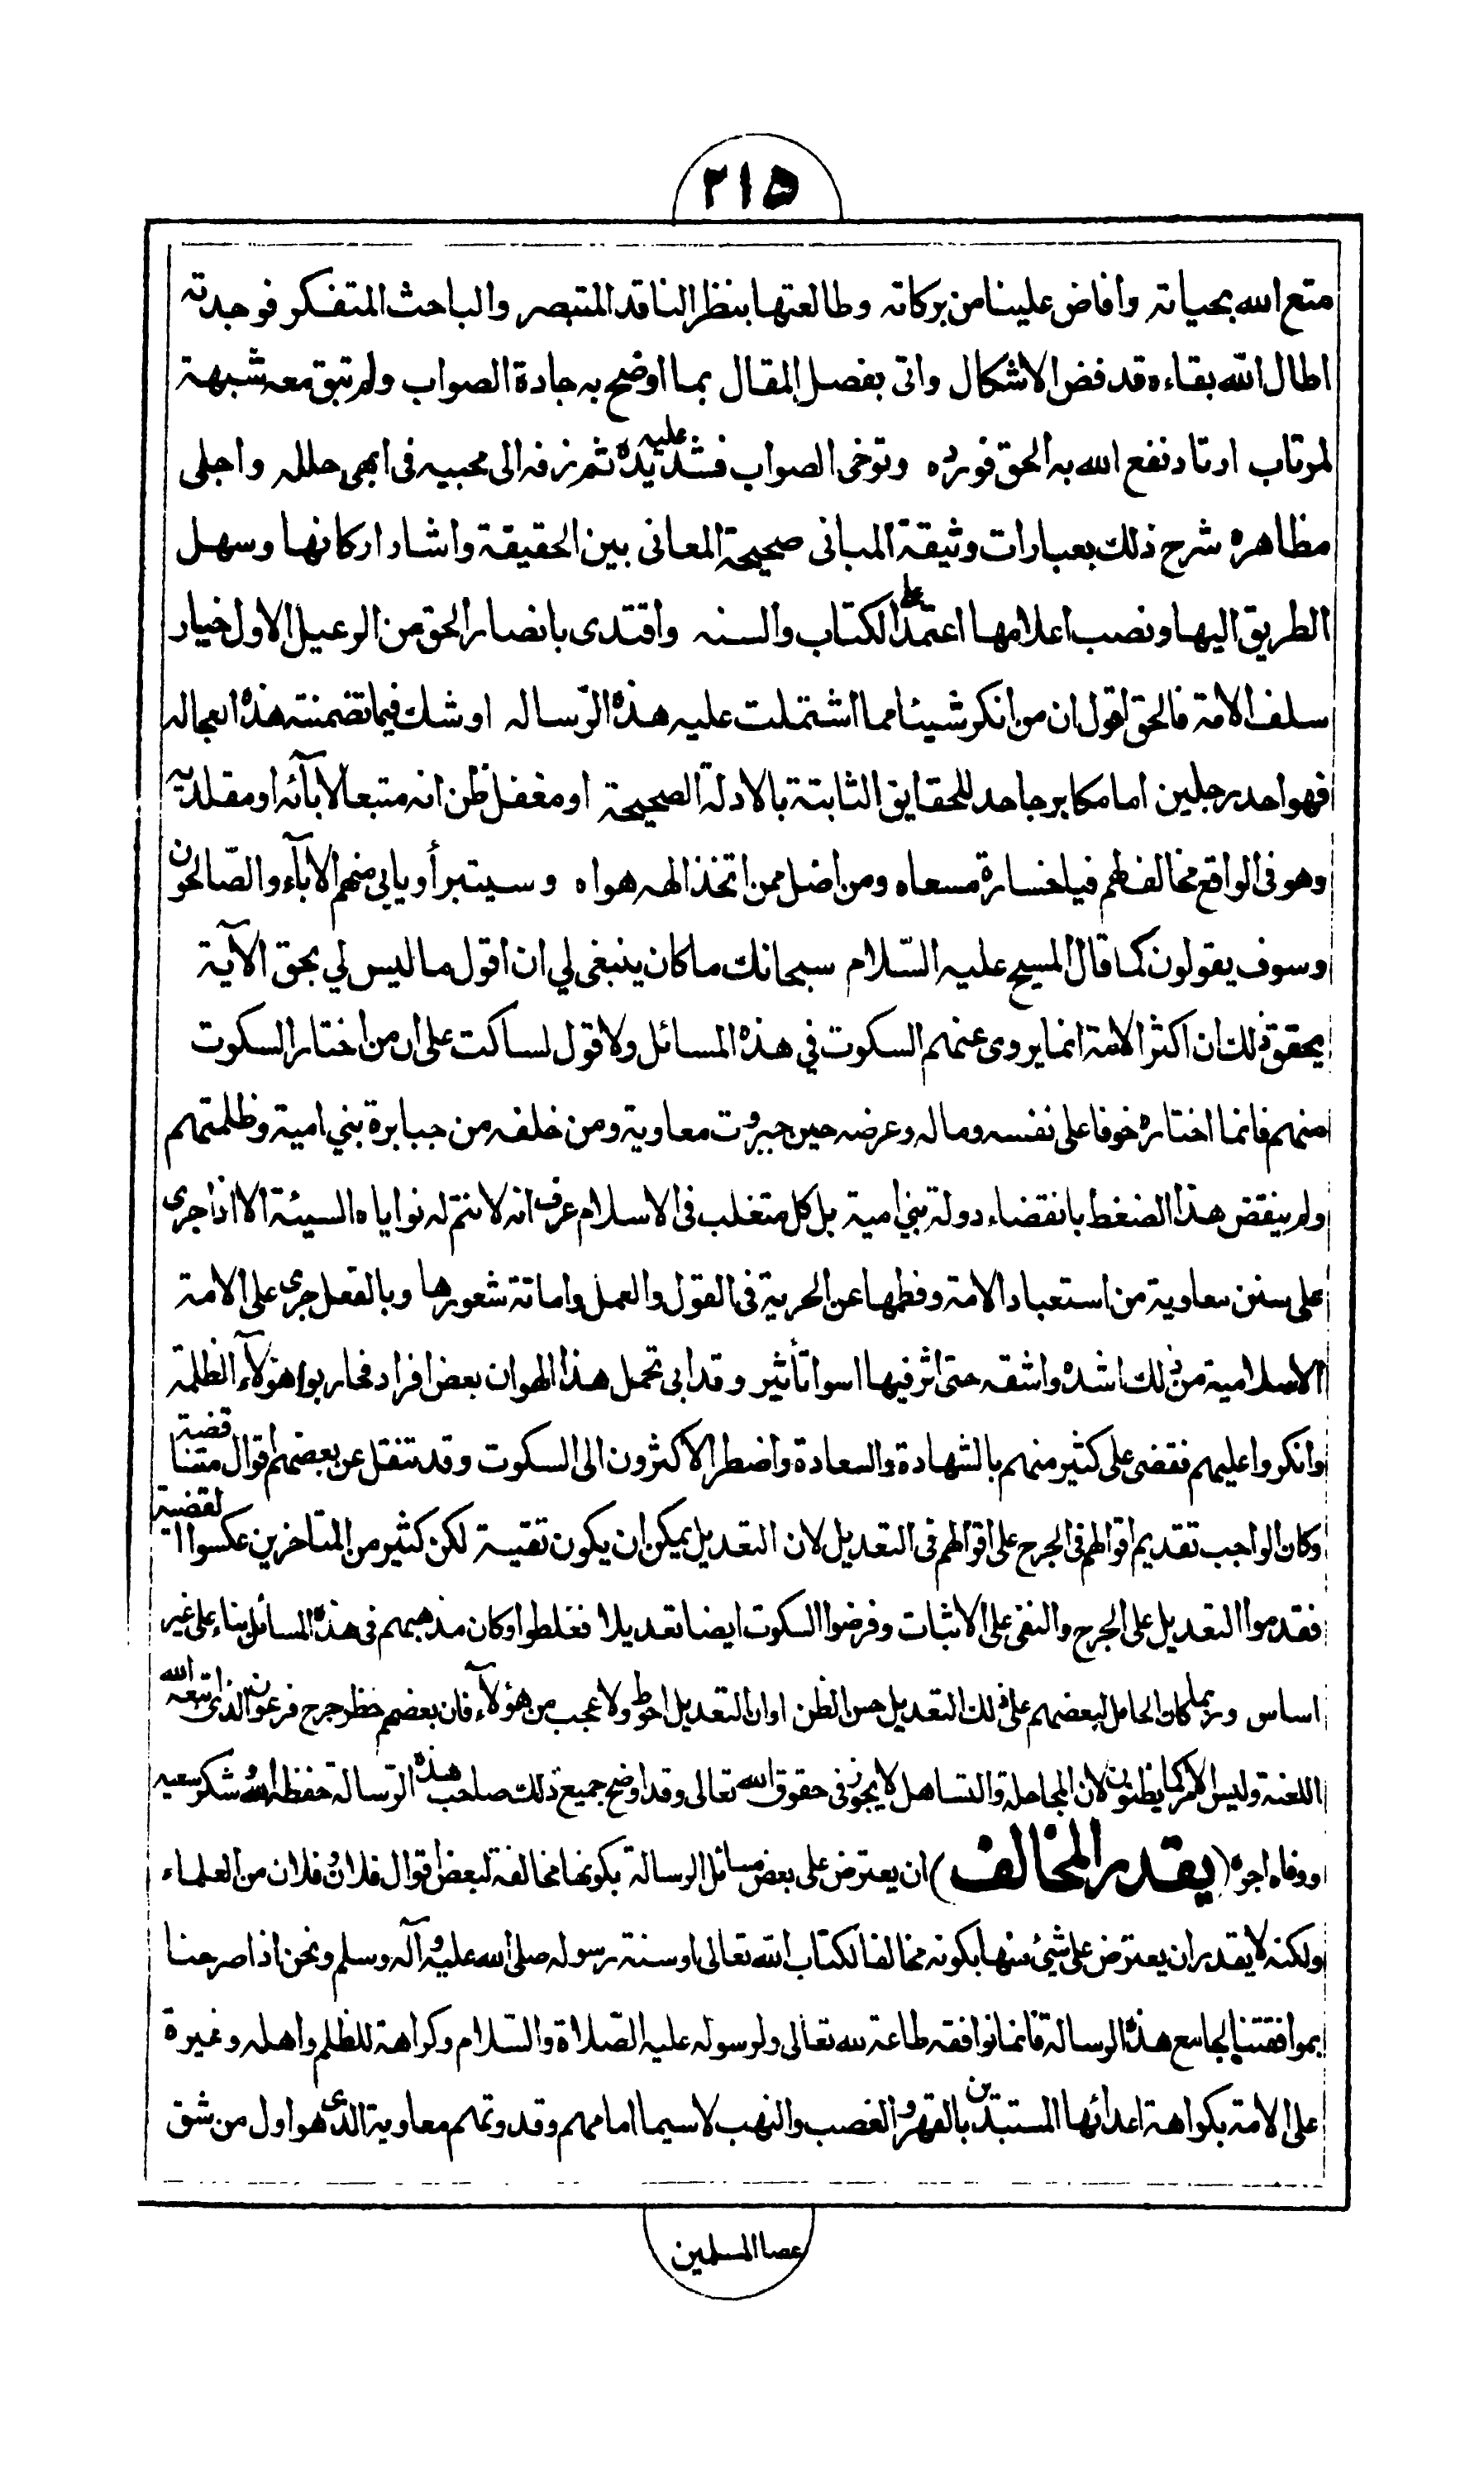 ٢١٥
متع الله بحياته وافاض علينا من بركاته وطالعتها بنظر الناقد المتبصر والباحث المتفكر فوجدته
اطال الله بقاءه قد فض الاشكال واتى بفصل المقال بما اوضح به جادة الصواب ولم تبق معه شبهة
لمرتاب ارتاد نفع الله به الحق فورده وتوخى الصواب فشد عليه يده ثم زفه الى محبيه في ابهى حلله واجلى
مظاهره شرح ذلك بعبارات وثيقة المباني صحيحة المعاني بين الحقيقة واشاد اركانها وسهل
الطريق اليها ونصب اعلامها اعتمد على الكتاب والسنه واقتدى بانصار الحق من الرعيل الاول خيار
سلف الامة فالحق اقول ان من انكر شيئا مما اشتملت عليه هذه الرّساله او شك فيما تضمنته هذه العجاله
فهو احد رجلين اما مكابر جاحد للحقايق الثابتة بالادلة الصحيحة او مغفل ظن انه متبعا لآبآئه او مقلديه
وهو في الواقع مخالف لهم فيا خسارة مسعاه ومن اضل ممن اتخذ الهه هواه وسيتبرأ ويابى منهم الآبآء والصّالحون
وسوف يقولون كما قال المسيح عليه السّلام سبحانك ما كان ينبغي لي ان اقول ما ليس لي بحق الآية
يحقق ذلك ان اكثر الائمة انما يروى عنهم السكوت في هذه المسائل ولا قول لساكت على ان من اختار السكوت
منهم فانما اختاره خوفا على نفسه وماله وعرضه حين جبروت معاوية ومن خلفه من جبابرة بني امية وظلمتهم
ولم ينقض هذا الضغط بانقضاء دولة بني امية بل كل متغلب في الاسلام عرف انه لا تتم له نواياه السيئة الا اذا جرى
على سنن معاوية من استعباد الامة وفطمها عن الحرية في القول والعمل واماتة شعورها وبالفعل جرى على الامة
الاسلامية من ذلك اشده واشقه حتى اثر فيها اسوا تأثير وقد ابى تحمل هذا الهوان بعض افراد فحاربوا هؤلآء الظلمة
وانكروا عليهم فقضى على كثير منهم بالشهادة والسعادة واضطر الاكثرون الى السكوت وقد تنقل عن بعضهم اقوال متناقضة
وكان الواجب تقديم اقوالهم في الجرح على اقوالهم في التعديل لان التعديل يمكن ان يكون تقية لكن كثير من المتاخرين عكسوا القضية
فقدموا التعديل على الجرح والنفي على الاثبات وفرضوا السكوت ايضا تعديلا فغلطوا وكان مذهبهم في هذه المسائل بناء على غير
اساس وربما كان الحامل لبعضهم على ذلك التعديل حسن الظن او ان التعديل احوط ولا عجب من هؤلآء فان بعضهم حظر جرح فرعون الذي اتبعه الله
اللعنة وليس الامر كما يظنون لان المجاملة والتساهل لا يجوز في حقوق الله تعالى وقد اوضح جميع ذلك صاحب هذه الرسالة حفظه الله وشكر سعيه
ووفاه اجره (يقدر المخالف) ان يعترض على بعض مسائل الرسالة بكونها مخالفة لبعض اقوال فلان وفلان من العلماء
ولكنه لا يقدر ان يعترض على شيئ منها بكونه مخالفا لكتاب الله تعالى او سنة رسوله صلى الله عليه وآله وسلم ونحن اذا صرحنا
بموافقتنا لجامع هذه الرسالة فانما نوافقه طاعة لله تعالى ولرسوله عليه الصّلاة والسّلام وكراهة للظلم واهله وغيرة
على الامة بكراهة اعدائها المستبدين بالقهر والغصب والنهب لا سيما امامهم وقدوتهم معاوية الذي هو اول من شق
عصا المسلمين